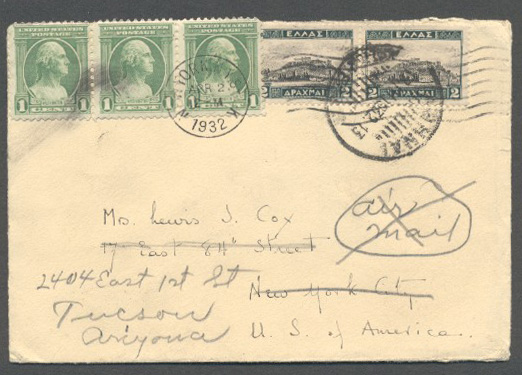 UNITED STATES POSTAGE UNITED STATES POSTAGE UNITED STATES POSTAGE
1 1 1 1 1 1
ΕΛΛΑΣ ΕΛΛΑΣ
2 ΔΡΑΧΜΑΙ 2 2 ΔΡΑΧΜΑΙ 2
1932
Mrs. Lewis J. Cox
17 East 84th Street
air mail
2404 East 1st St
New York City
Tucson
Arizona
U. S. of America.